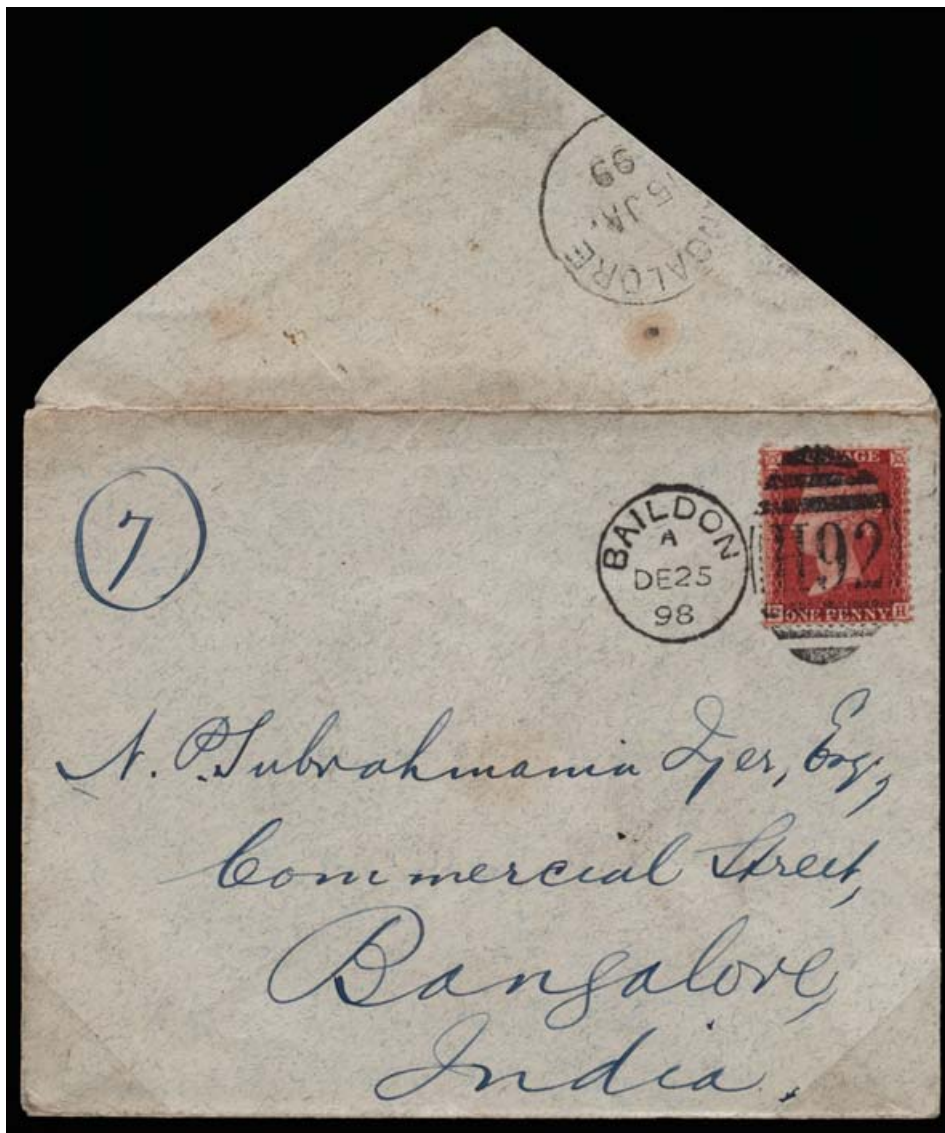 15 JA.
99
7
BAILDON
A
DE 25
98
POSTAGE
H92
ONE PENNY
H
N. P. Subrahmania Iyer, Esq.,
Commercial Street,
Bangalore,
India.